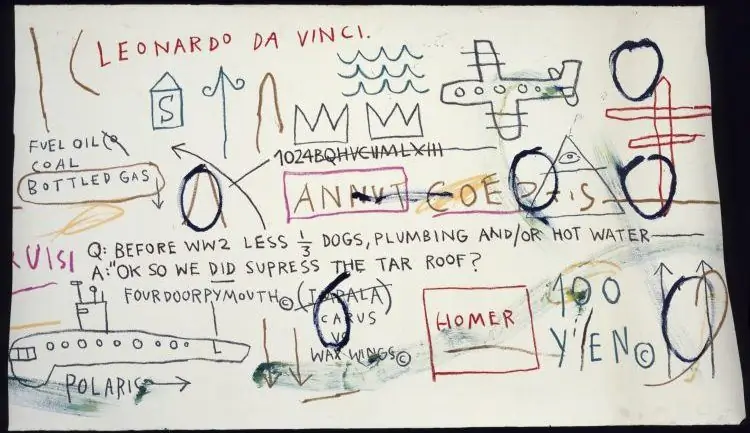 LEONARDO DA VINCI.
S
FUEL OIL
COAL
BOTTLED GAS
1024BQHVCIIMLXIII
ANNUIT COEPTIS
Q: BEFORE WW2 LESS 1/3 DOGS, PLUMBING AND/OR HOT WATER
A: "OK SO WE DID SUPRESS THE TAR ROOF?
FOURDOORPYMOUTH©
CARUS
WAX WINGS©
HOMER
100
YEN©
L
POLARIS